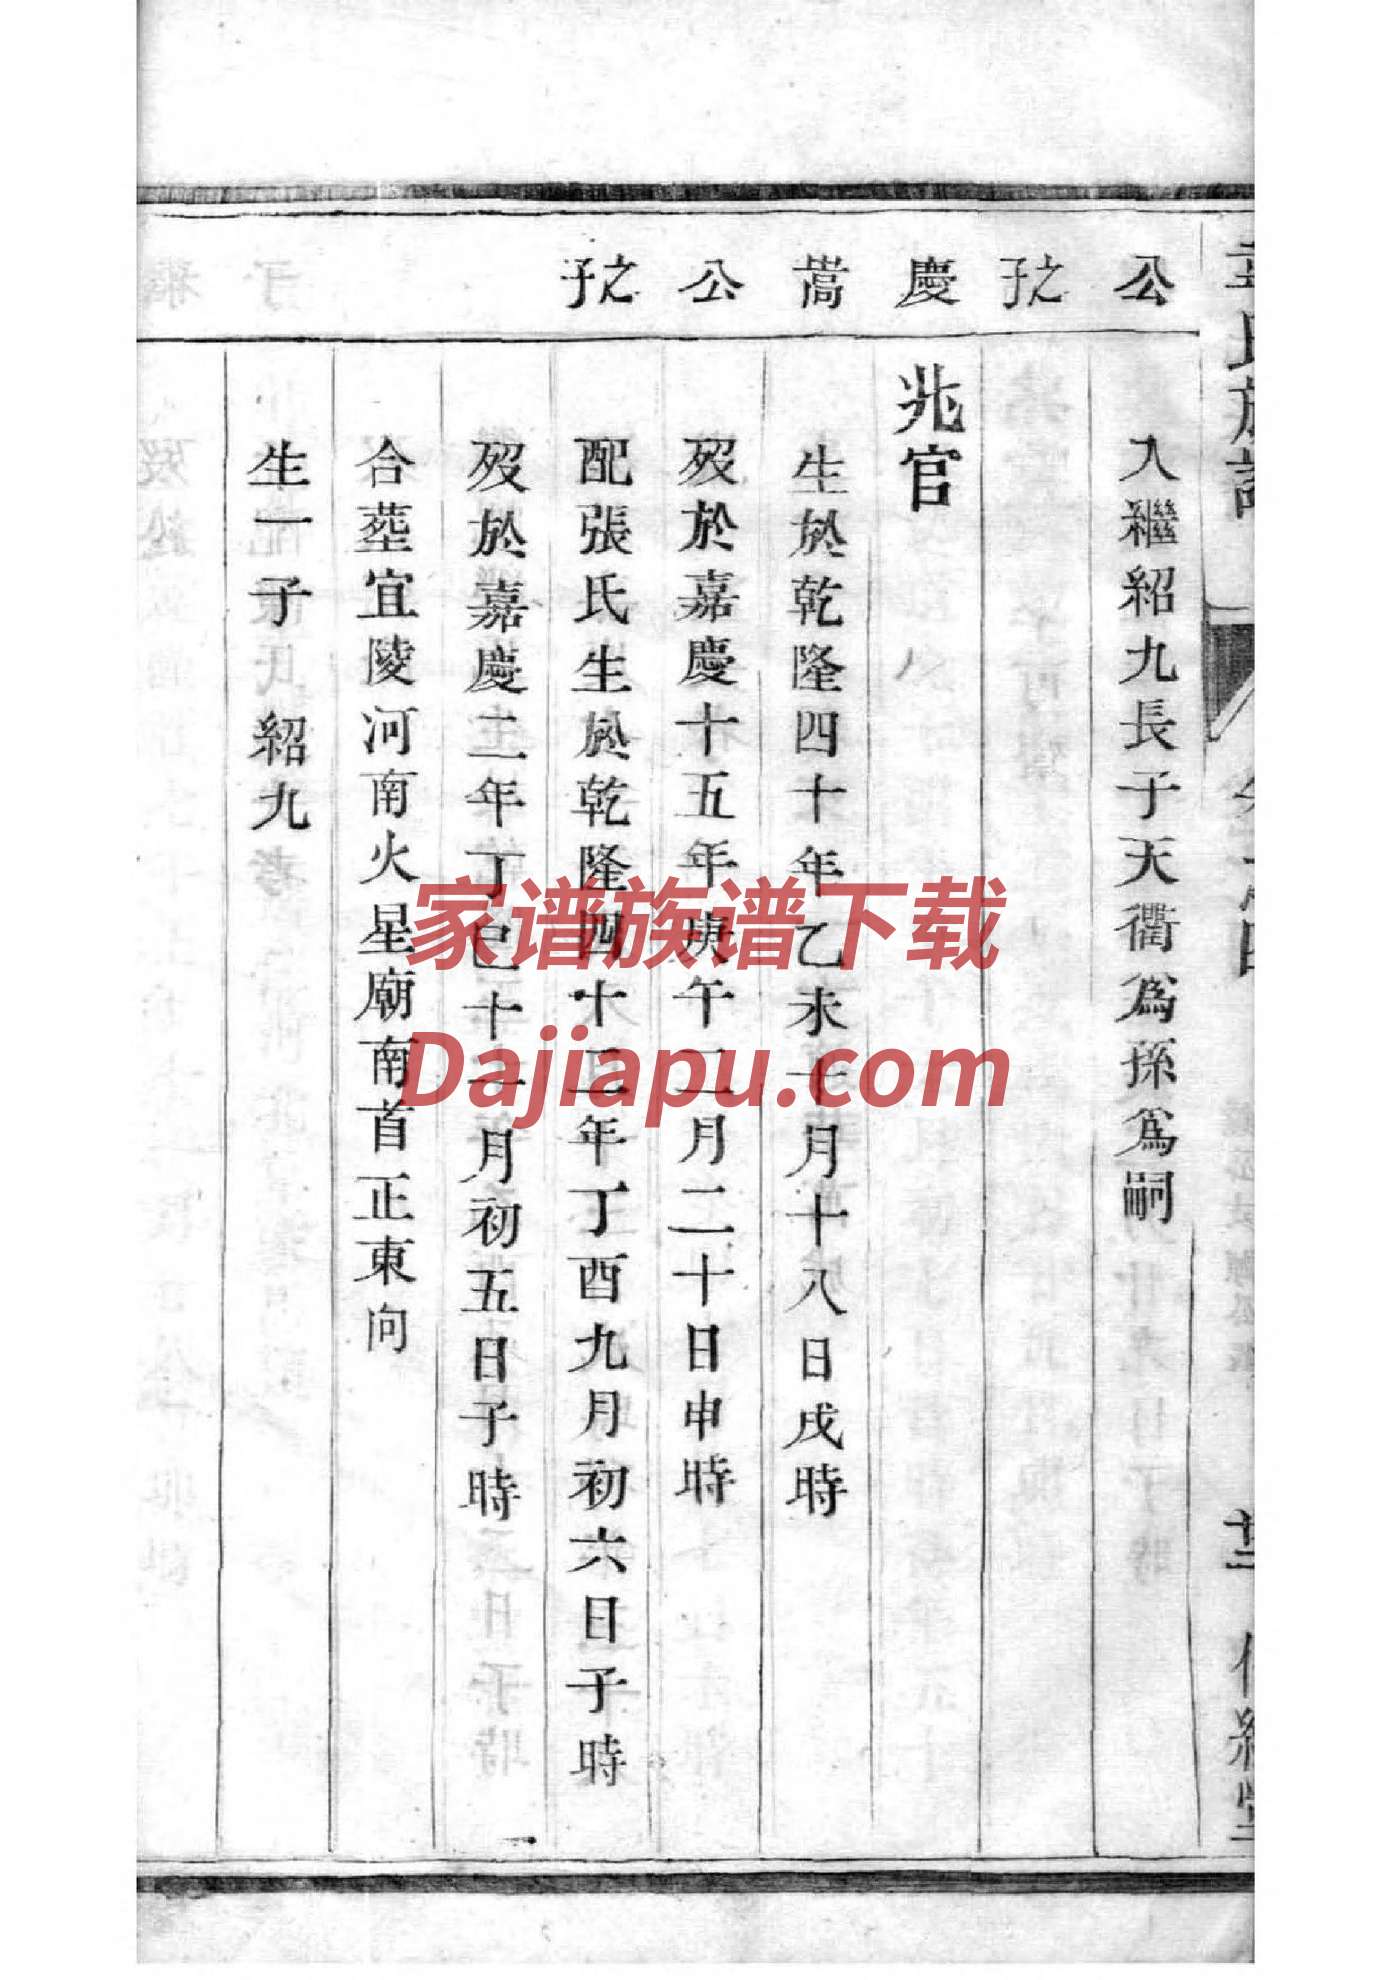 公
之子
慶
嵩
公
之子
入繼紹九長子天衢為孫為嗣
兆官
生於乾隆四十年乙未十月十八日戌時
歿於嘉慶十五年庚午二月二十日申時
配張氏生於乾隆四十二年丁酉九月初六日子時
歿於嘉慶二年丁巳十一月初五日子時
合塟宜陵河南火星廟南首正東向
生一子 紹九
家谱族谱下载
Dajiapu.com